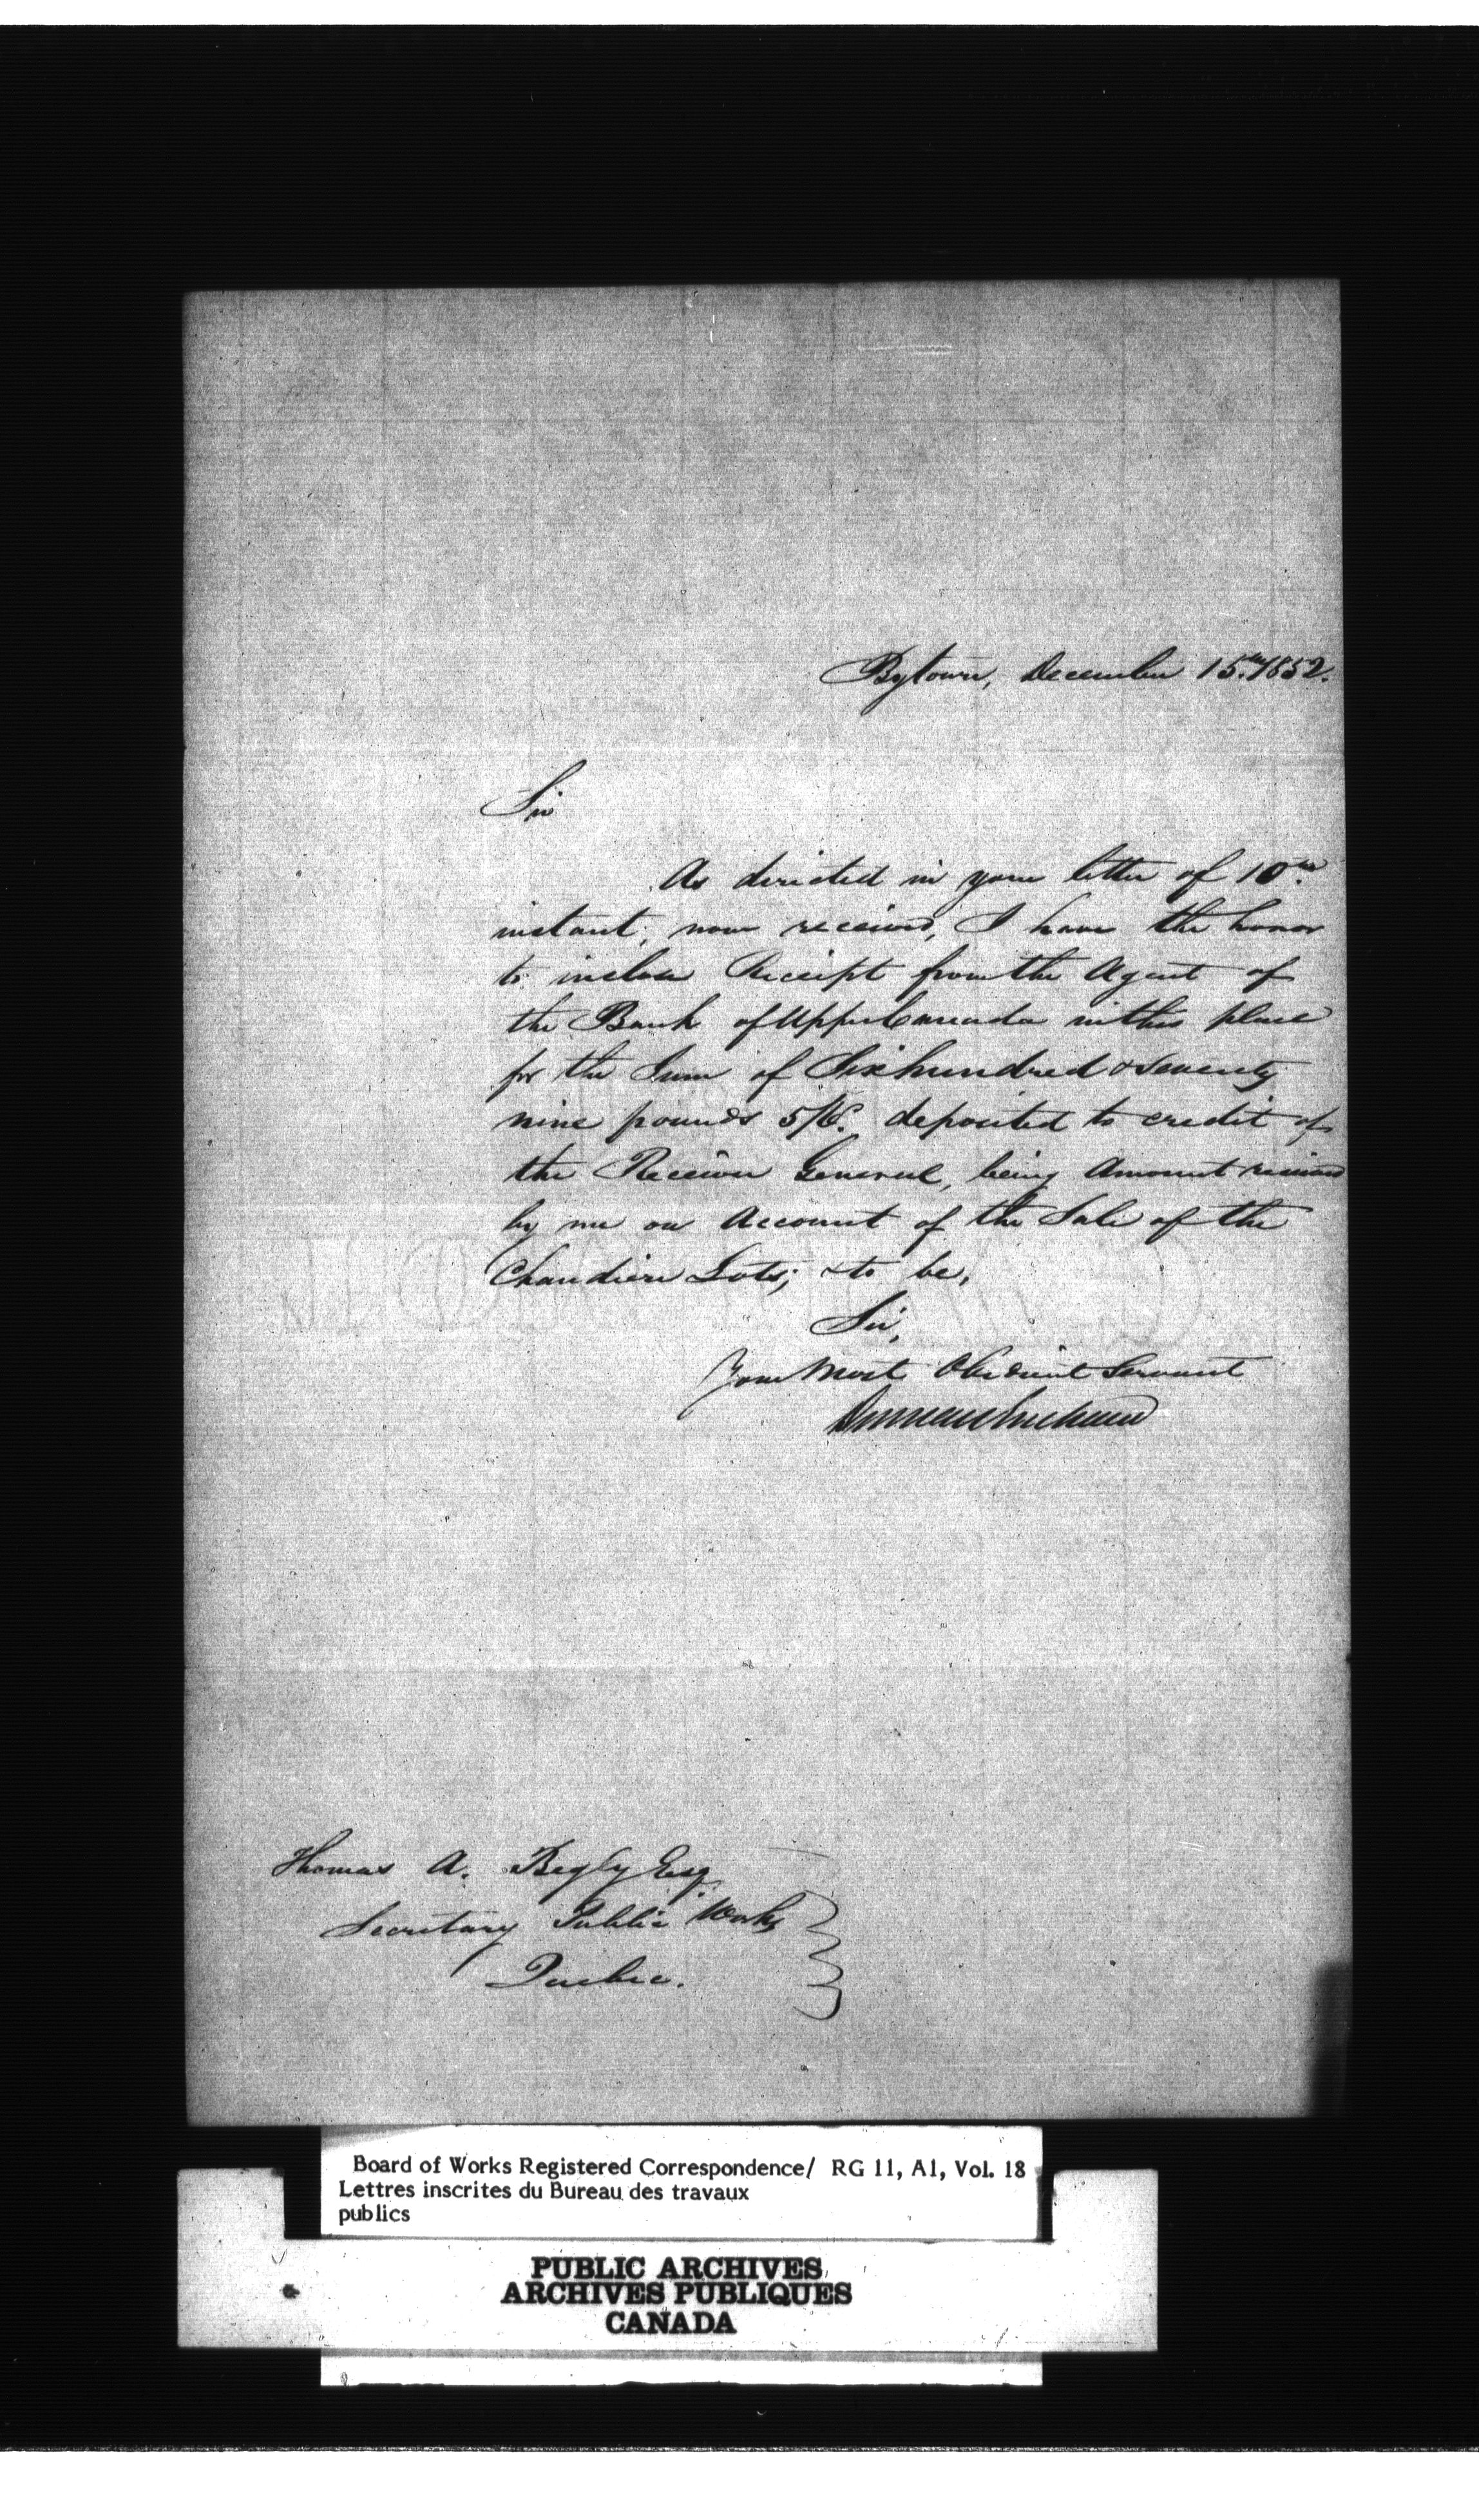 Bytown, December 15th 1852.
Sir
As directed in your letter of 10th
instant, now received, I have the honor
to inclose Receipt from the Agent of
the Bank of Upper Canada in this place
for the Sum of Six hundred & Seventy
nine pounds 5/6. deposited to credit of
the Receiver General, being Amount received
by me on Account of the Sale of the
Chaudiere Lots; & to be,
Sir,
Your Most Obedient Servant
Thomas A. Begly Esq.
Secretary Public Works
Quebec.
Board of Works Registered Correspondence/ RG 11, A1, Vol. 18
Lettres inscrites du Bureau des travaux
publics
PUBLIC ARCHIVES
ARCHIVES PUBLIQUES
CANADA